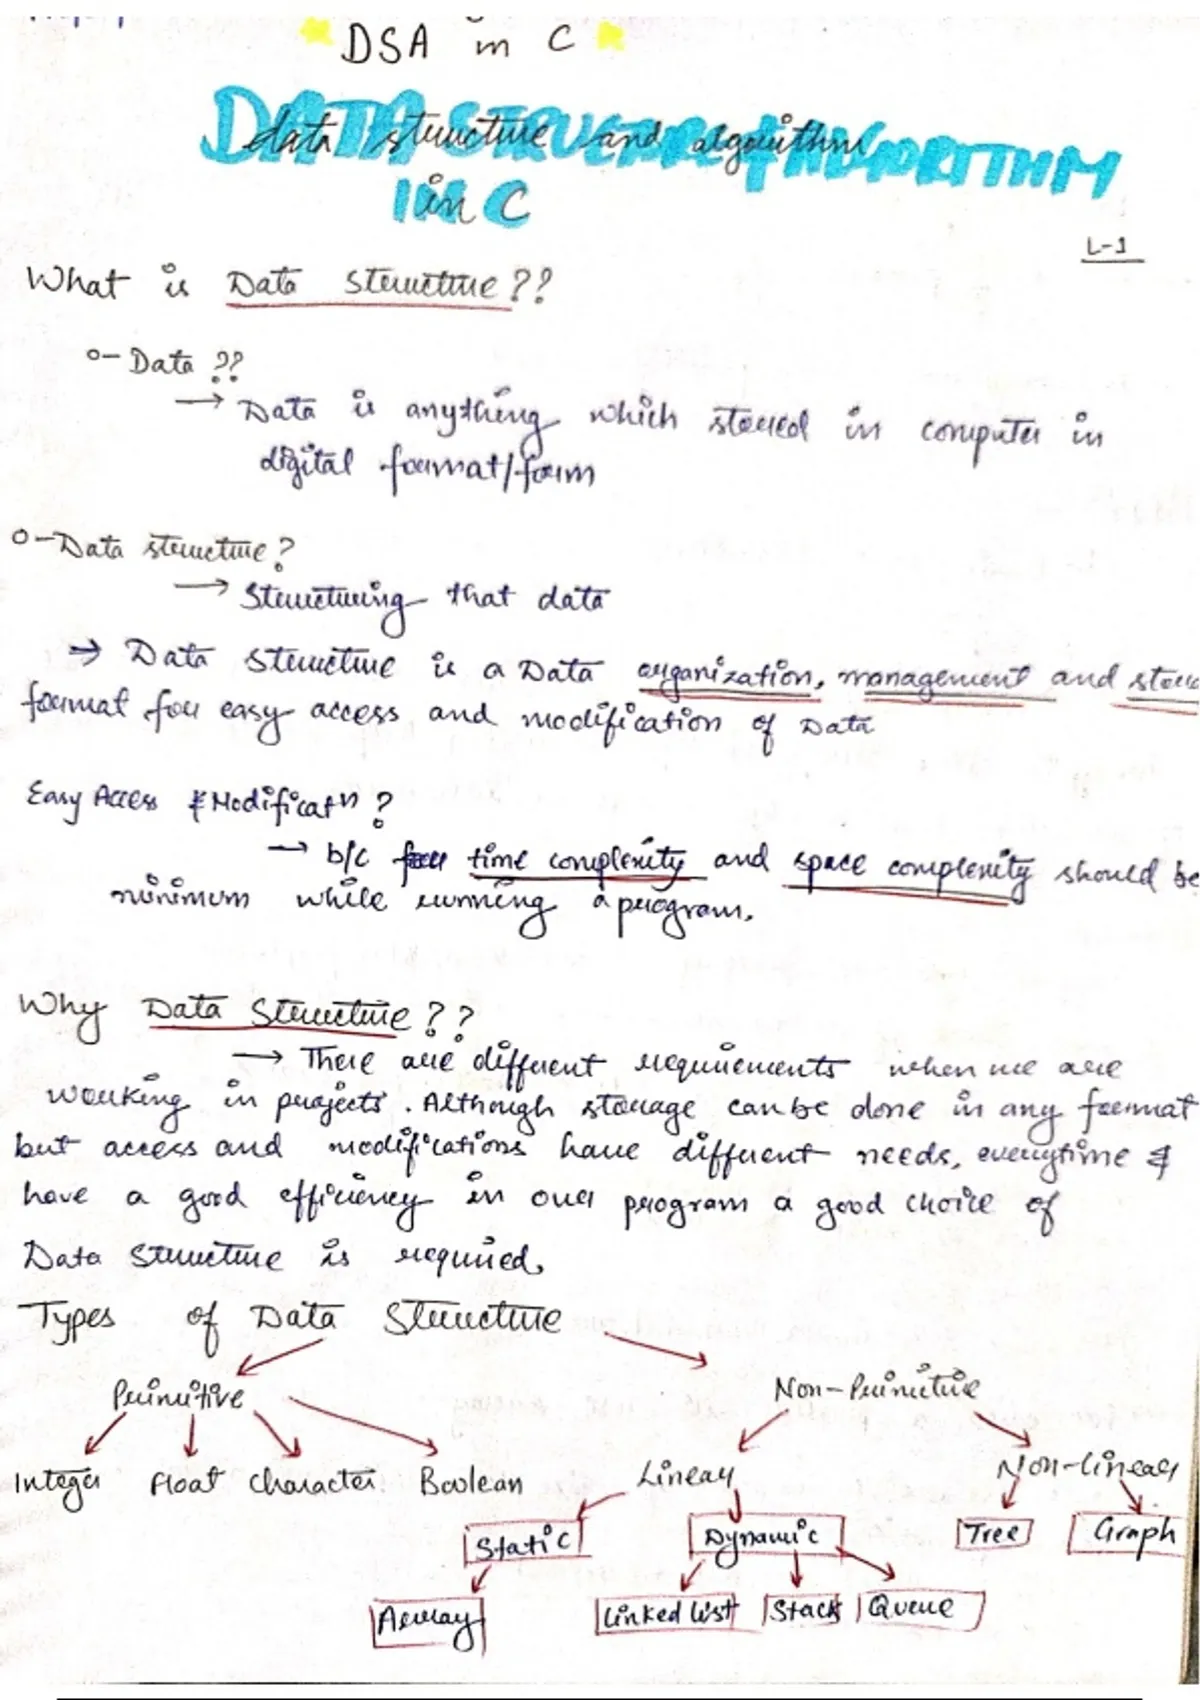 DSA in C
DATA STRUCTURE & ALGORITHM
data structure and algorithm
IN C
in C
L-1
What is Data Structure??
o- Data ??
→ Data is anything which stored in computer in
digital format/form
o-Data structure?
→ Structuring that data
⇒ Data structure is a Data organization, management and
format for easy access and modification of Data
Easy Access & Modificatn?
→ b/c time complexity and space complexity should be
minimum while running a program.
Why Data Structure??
→ There are different requirements when we are
working in projects. Although storage can be done in any format
but access and modifications have different needs, everytime &
have a good efficiency in our program a good choice of
Data Structure is required.
Types of Data Structure
Primitive Non-Primitive
Integer Float Character Boolean Linear Non-linear
Static Dynamic Tree Graph
Array Linked list Stack Queue